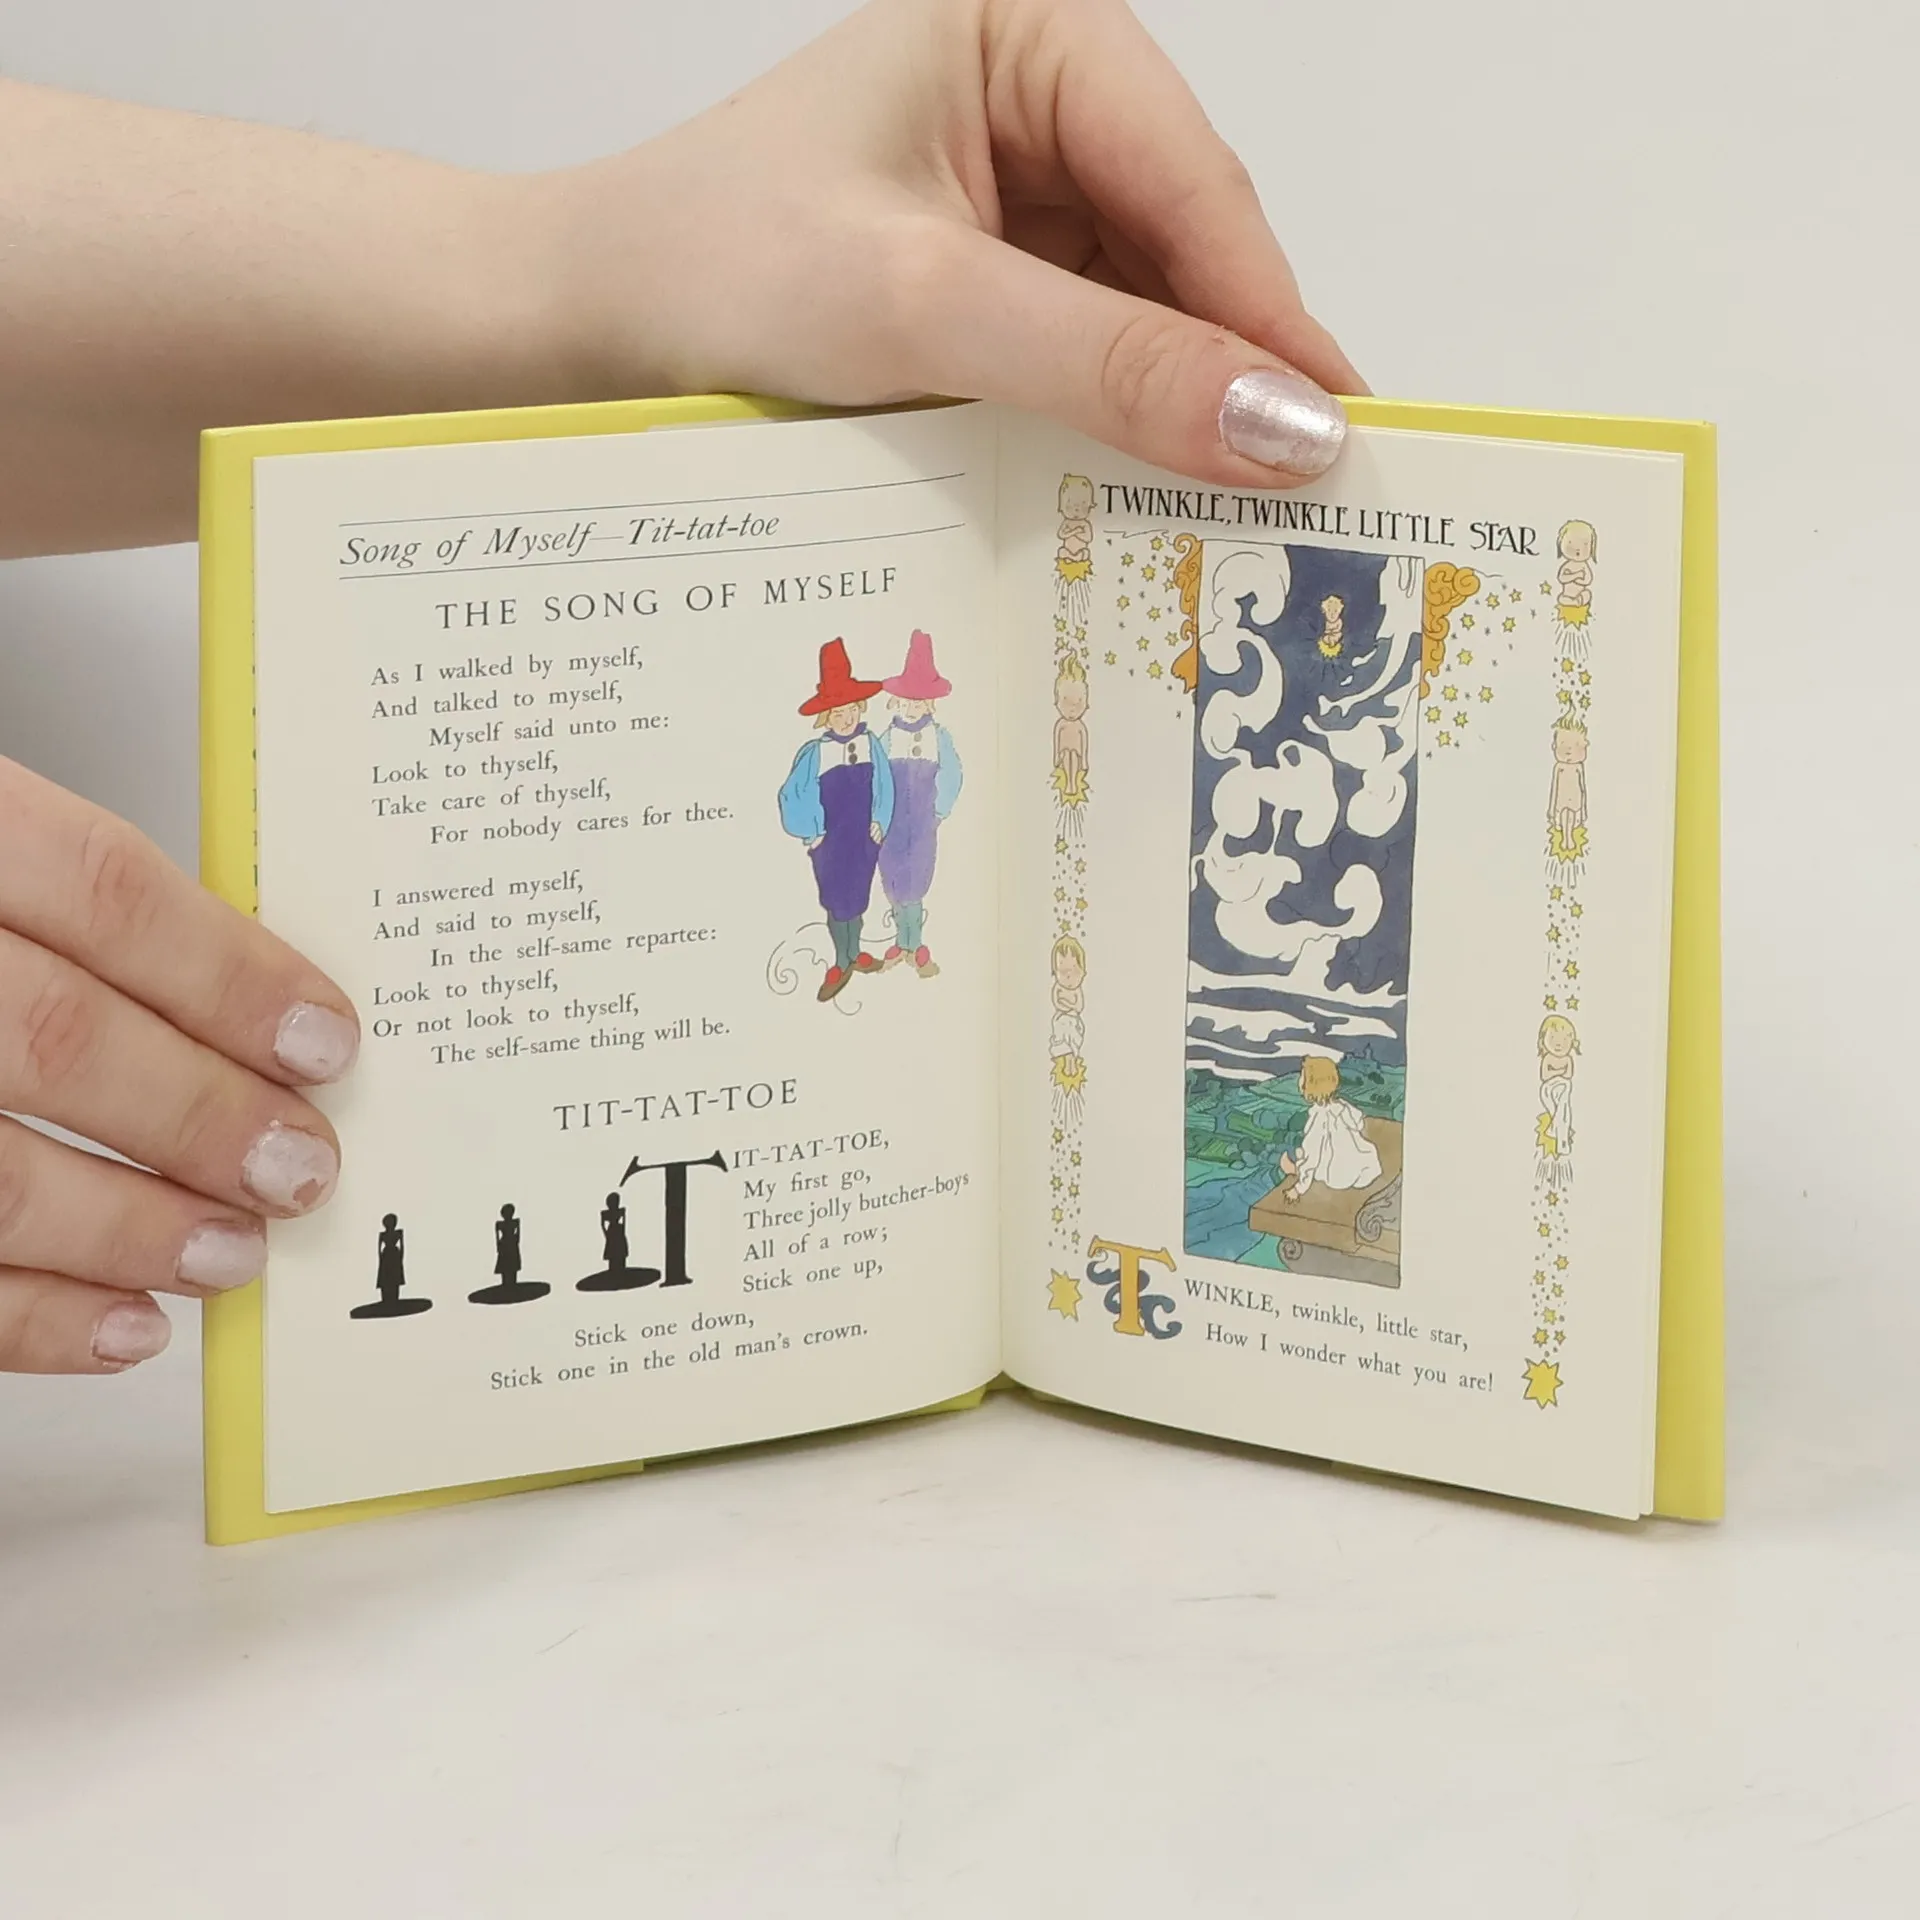 Song of Myself—Tit-tat-toe
THE SONG OF MYSELF
As I walked by myself,
And talked to myself,
Myself said unto me:
Look to thyself,
Take care of thyself,
For nobody cares for thee.
I answered myself,
And said to myself,
In the self-same repartee:
Look to thyself,
Or not look to thyself,
The self-same thing will be.
TIT-TAT-TOE
TIT-TAT-TOE,
My first go,
Three jolly butcher-boys
All of a row;
Stick one up,
Stick one down,
Stick one in the old man's crown.
TWINKLE, TWINKLE LITTLE STAR
TWINKLE, twinkle, little star,
How I wonder what you are!